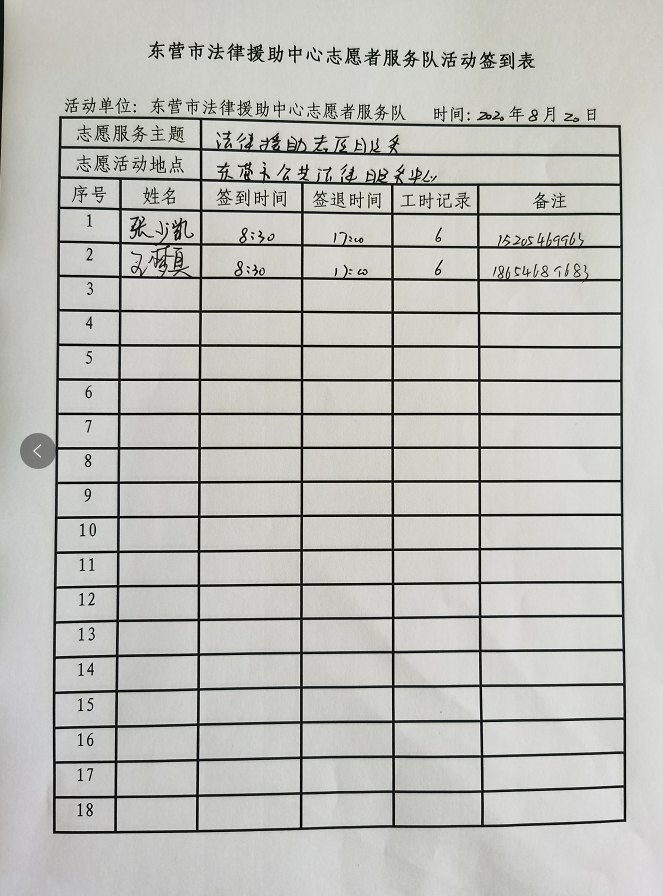 东营市法律援助中心志愿者服务队活动签到表
活动单位：东营市法律援助中心志愿者服务队 时间：2020年8月20日
志愿服务主题 法律援助志愿服务
志愿活动地点 东营市公共法律服务中心
序号 姓名 签到时间 签退时间 工时记录 备注
1 张少凯 8:30 17:00 6
2 8:30 17:00 6 18654689683
3
4
5
6
7
8
9
10
11
12
13
14
15
16
17
18